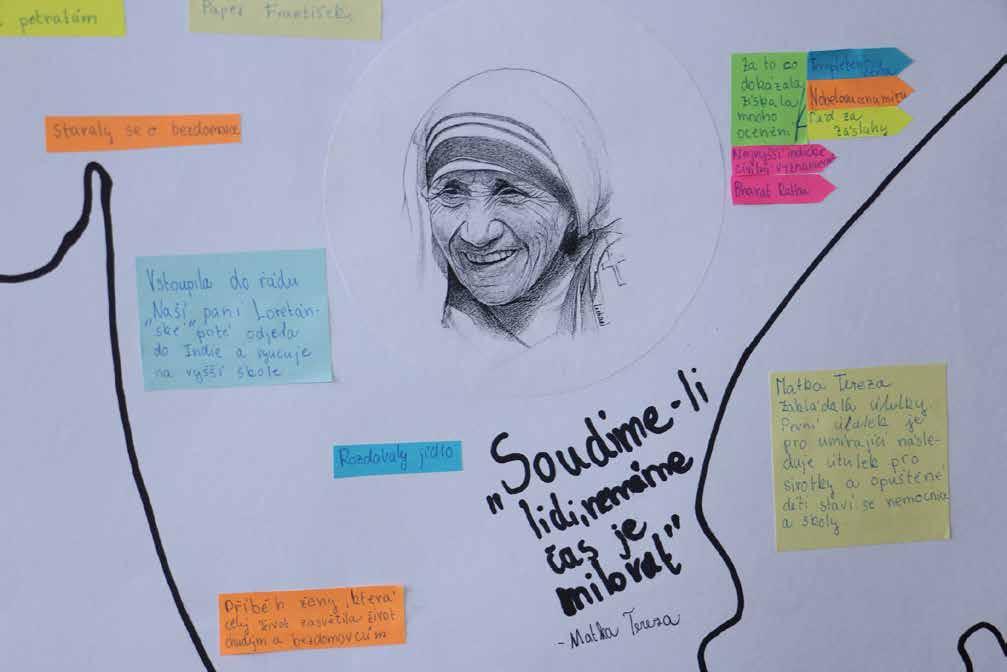 petralám
Papež František
Staraly se o bezdomovce
Za to co
dokázala
získala
mnoho
ocenění
Templetonova
cena
Nobelova cena míru
Řád za
zásluhy
Nejvyšší indické
civilní vyznamenání
Bharat Ratna
Vstoupila do řádu
„Naší paní Loretán-
ské" poté odjela
do Indie a vyučuje
na vyšší škole
Rozdávaly jídlo
„Soudíme-li
lidi, nemáme
čas je
milovat"
- Matka Tereza
Matka Tereza
zakládala útulky.
První útulek je
pro umírající násle-
duje útulek pro
sirotky a opuštěné
děti staví se nemocnice
a školy
Příběh ženy, která
celý život zasvětila život
chudým a bezdomovcům